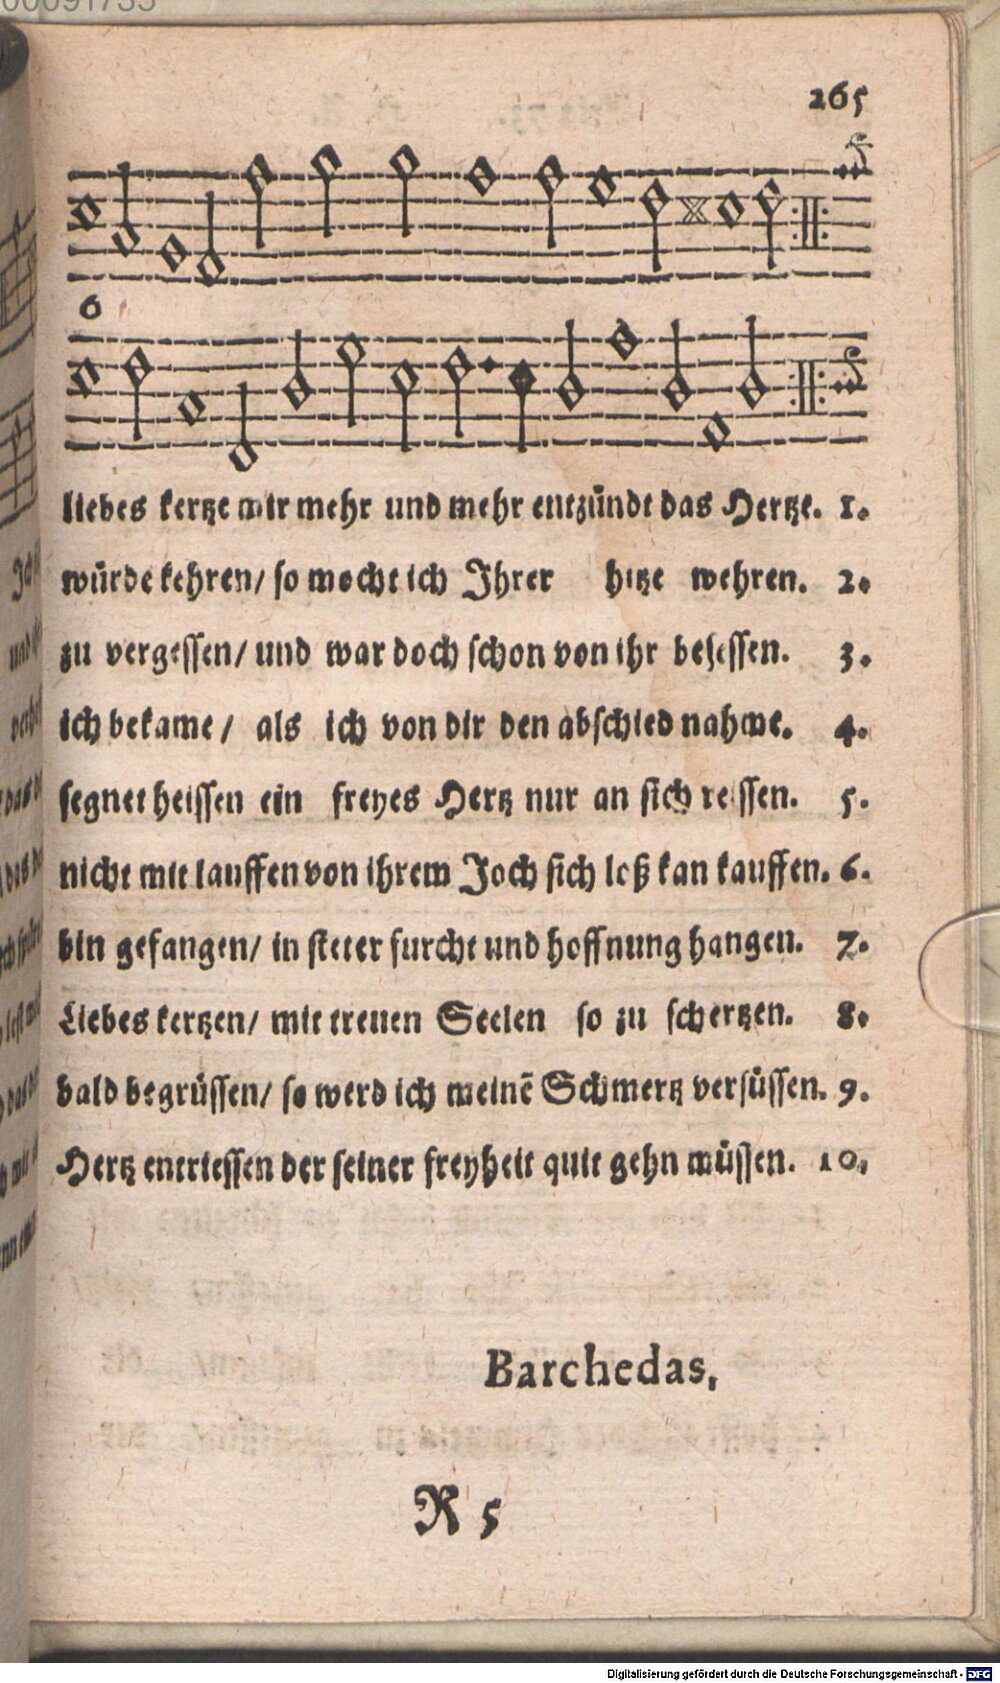 00091735
265
6
liebes kertze mir mehr und mehr entzündt das Hertze. 1.
würde kehren/ so mocht ich Ihrer hitze wehren. 2.
zu vergessen/ und war doch schon von ihr besessen. 3.
ich bekame/ als ich von dir den abschied nahme. 4.
segnet heissen ein freyes Hertz nur an sich reissen. 5.
nicht mit lauffen von ihrem Joch sich loß kan kauffen. 6.
bin gefangen/ in steter furcht und hoffnung hangen. 7.
Liebes kertzen/ mit treuen Seelen so zu schertzen. 8.
bald begrüssen/ so werd ich meinē Schmertz versüssen. 9.
Hertz entriessen der seiner freyheit quit gehn müssen. 10.
Barchedas,
R 5
Digitalisierung gefördert durch die Deutsche Forschungsgemeinschaft - DFG